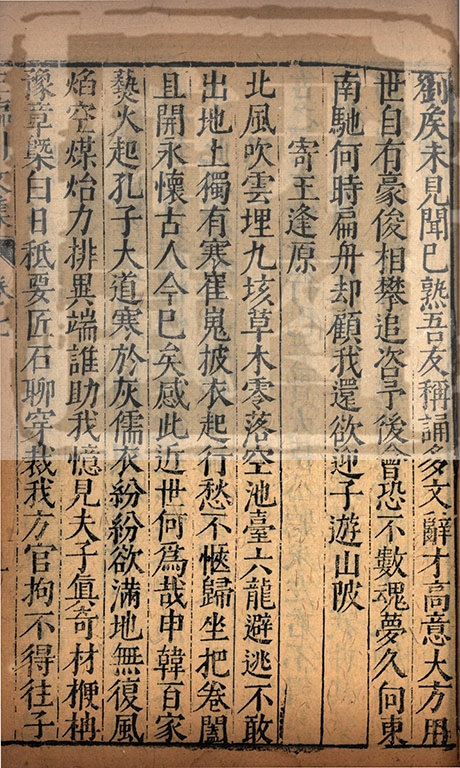 劉矦未見聞已熟吾友稱誦多文辭才高意大方用
世自有豪俊相攀追咨予後會恐不數魂夢久向東
南馳何時扁舟却顧我還欲迎子遊山陂
寄王逢原
北風吹雲埋九垓草木零落空池臺六龍避逃不敢
出地上獨有寒崔嵬披衣起行愁不愜歸坐把卷闔
且開永懷古人今已矣感此近世何為哉申韓百家
爇火起孔子大道寒於灰儒衣紛紛欲滿地無復風
焰空煤炲力排異端誰助我憶見夫子真奇材梗柟
豫章槩白日秪要匠石聊穿裁我方官拘不得往子